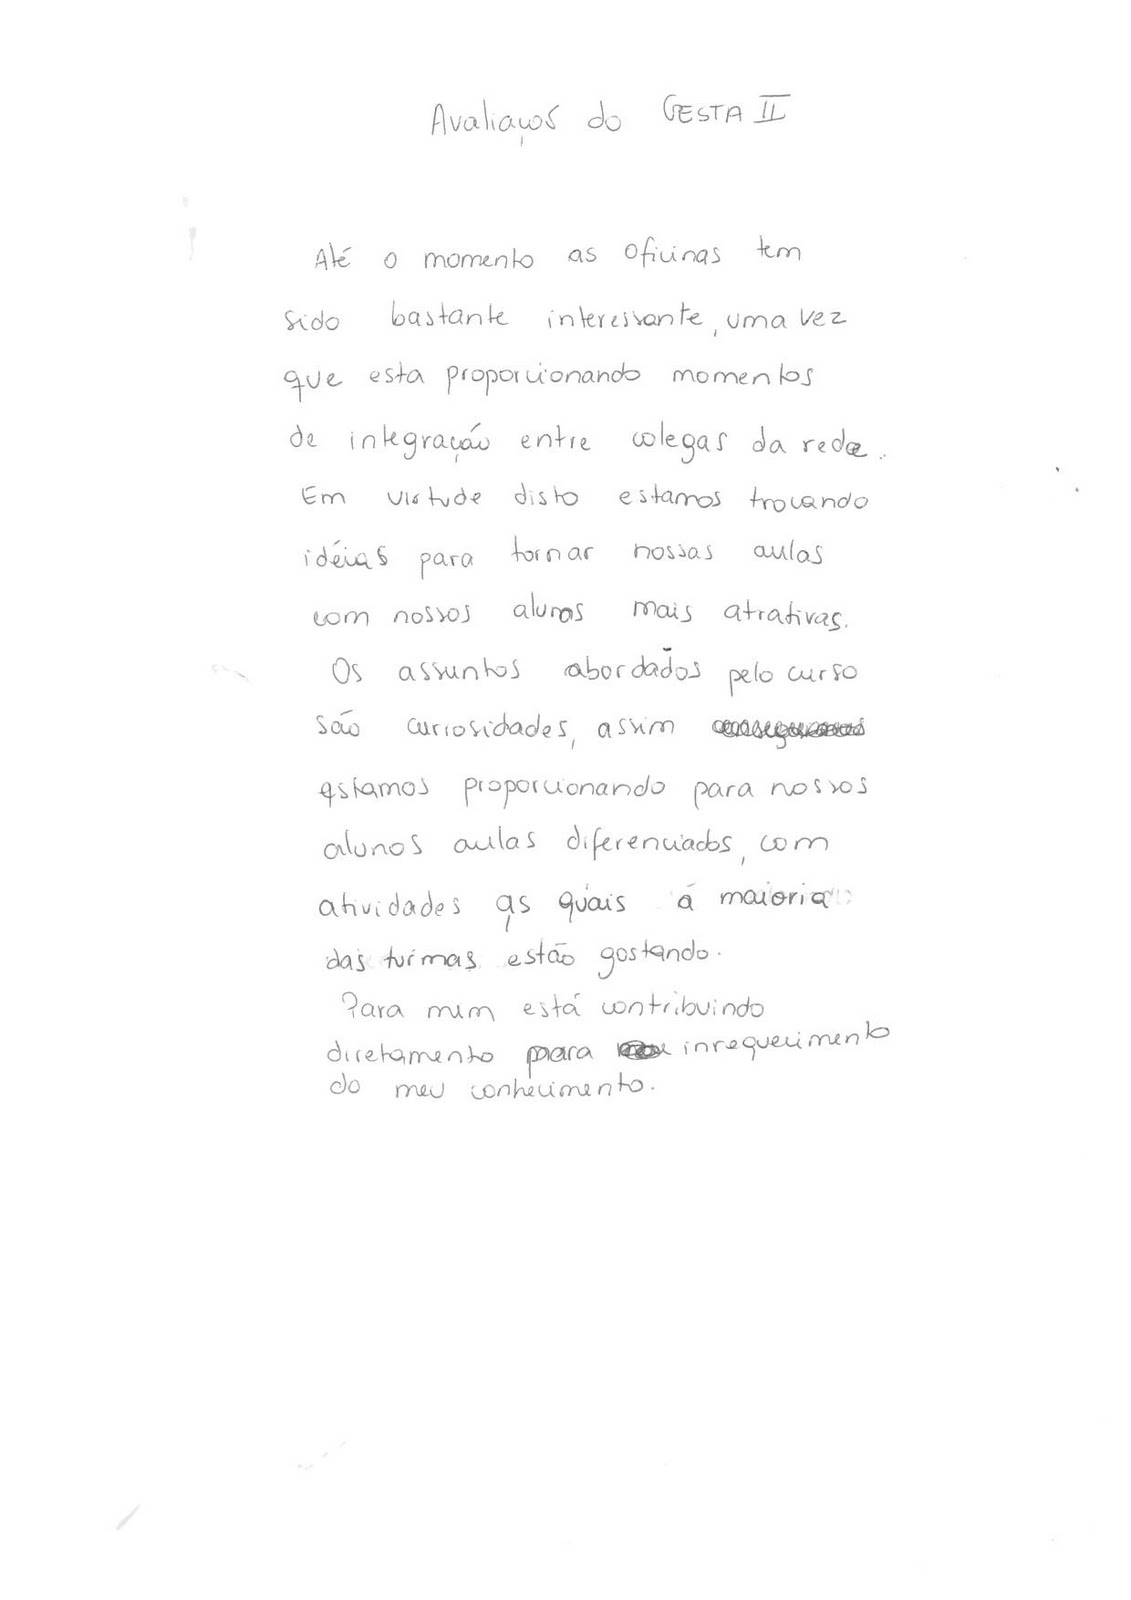 Avaliação do GESTA II
Até o momento as oficinas tem
sido bastante interessante, uma vez
que esta proporcionando momentos
de integração entre colegas da rede.
Em virtude disto estamos trocando
idéias para tornar nossas aulas
com nossos alunos mais atrativas.
Os assuntos abordados pelo curso
são curiosidades, assim
estamos proporcionando para nossos
alunos aulas diferenciados, com
atividades as quais á maioria
das turmas estão gostando.
Para mim está contribuindo
diretamento para inrequecimento
do meu conhecimento.